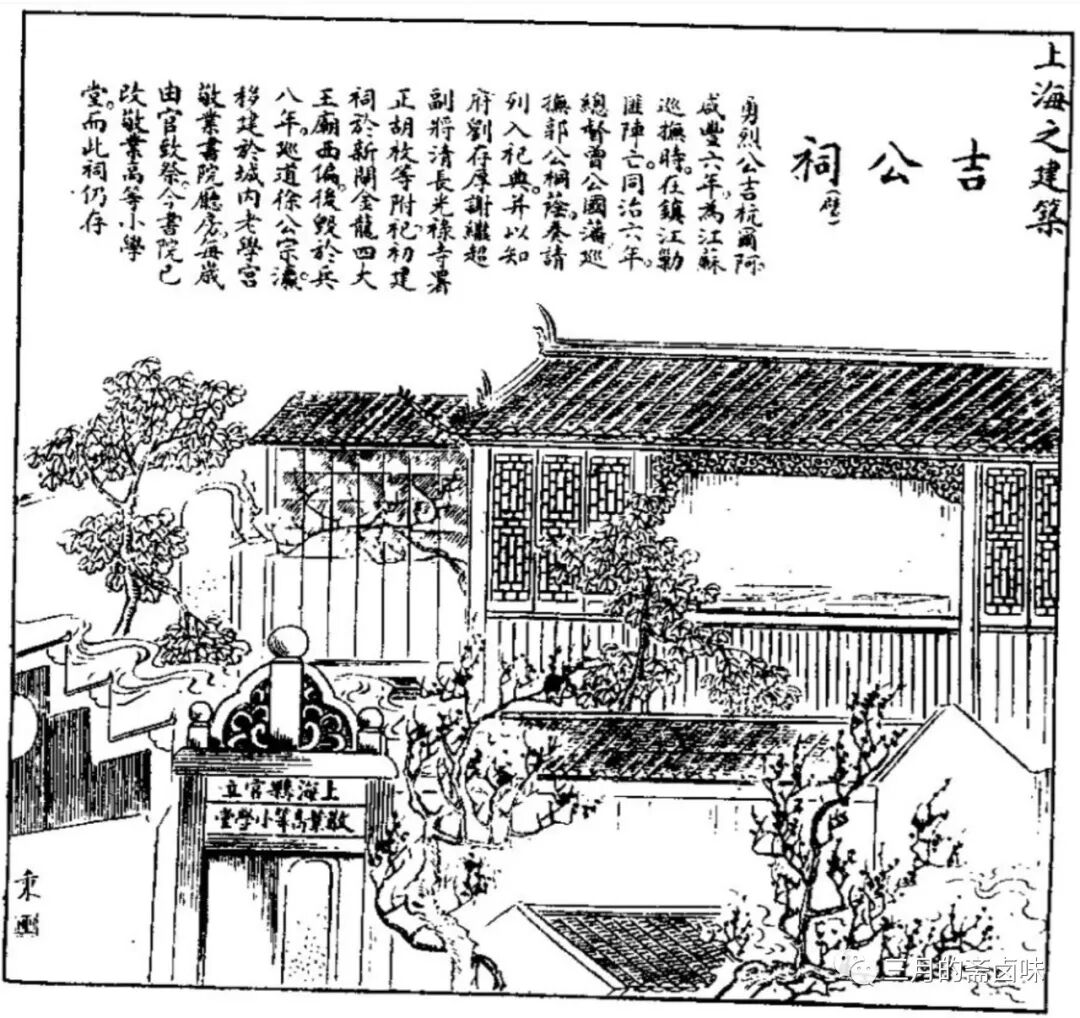 上海之建築
吉公祠(歷)
勇烈公吉杭爾阿
咸豐六年。為江蘇
巡撫時。在鎮江勦
匪陣亡。同治六年。
總督曾公國藩巡
撫郭公柏蔭奏請
列入祀典。并以知
府劉存厚謝繼超
副將清長光祿寺署
正胡枚等附祀。初建
祠於新閘金龍四大
王廟西偏。後毀於兵
八年。巡道徐公宗瀛
移建於城內老學宮
敬業書院廳房。每歲
由官致祭。今書院已
改敬業高等小學
堂。而此祠仍存
上海縣官立
敬業高等小學堂
秉
三月的斋卤味